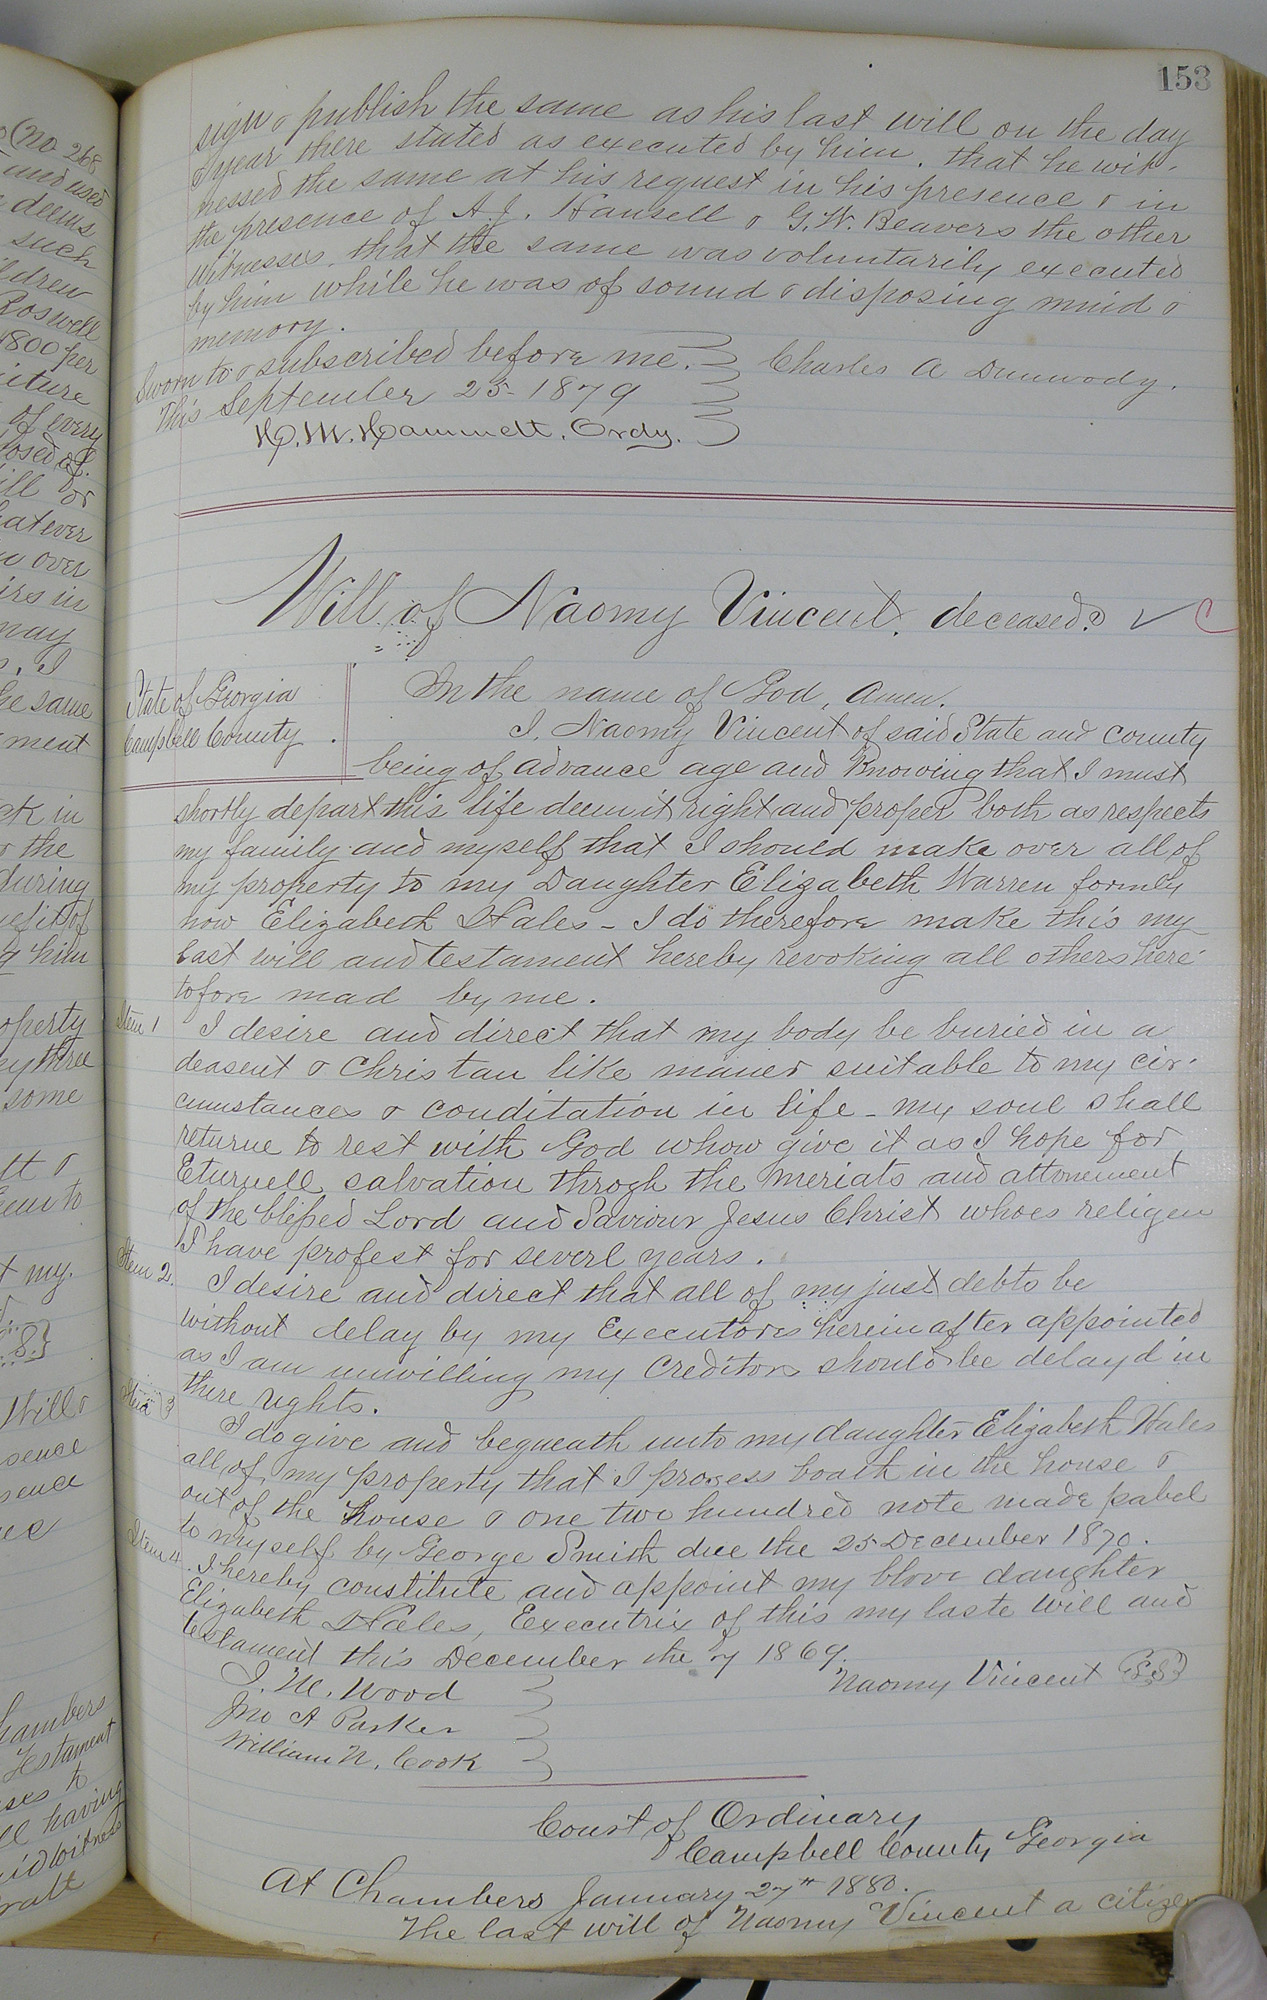 153
sign & publish the same as his last will on the day
& year there stated as executed by him. that he wit-
nessed the same at his request in his presence & in
the presence of A.J. Hansell & G.W. Beavers the other
witnesses. that the same was voluntarily executed
by him while he was of sound & disposing mind &
memory.
Sworn to & subscribed before me. Charles A Dunwody.
This September 25 1879
H.M. Hammett. Ordy.
Will of Naomy Vincent. deceased.
State of Georgia
Campbell County.
In the name of God, Amen.
I, Naomy Vincent of said State and county
being of advance age and Knowing that I must
shortly depart this life deem it right and proper both as respects
my family and myself that I should make over all of
my property to my Daughter Elizabeth Warren formly
now Elizabeth Hales - I do therefore make this my
last will and testament hereby revoking all others here-
tofore mad by me.
Item 1 I desire and direct that my body be buried in a
deasent & Christan like maner suitable to my cir-
cumstances & conditation in life - my soul shall
returne to rest with God whow give it as I hope for
Eturnell salvation throgh the meriats and attonement
of the blessed Lord and Saviour Jesus Christ whoes religeu
I have profest for severl years.
Item 2. I desire and direct that all of my just debts be
without delay by my Executores hereinafter appointed
as I am unwilling my Creditors should be delayd in
there rights.
Item 3 I do give and bequeath unto my daughter Elizabeth Hales
all of my property that I prosess boath in the house &
out of the house & one two hundred note made pabel
to myself by George Smith due the 25 December 1870.
Item 4. I hereby constitute and appoint my blove daughter
Elizabeth Hales, Executrix of this my laste will and
testament this December the 7 1869.
Naomy Vincent (L.S.)
J. M. Wood
Jno A Parker
William N. Cook
Court of Ordinary
Campbell County Georgia
At Chambers January 27th 1880.
The last will of Naomy Vincent a citizen